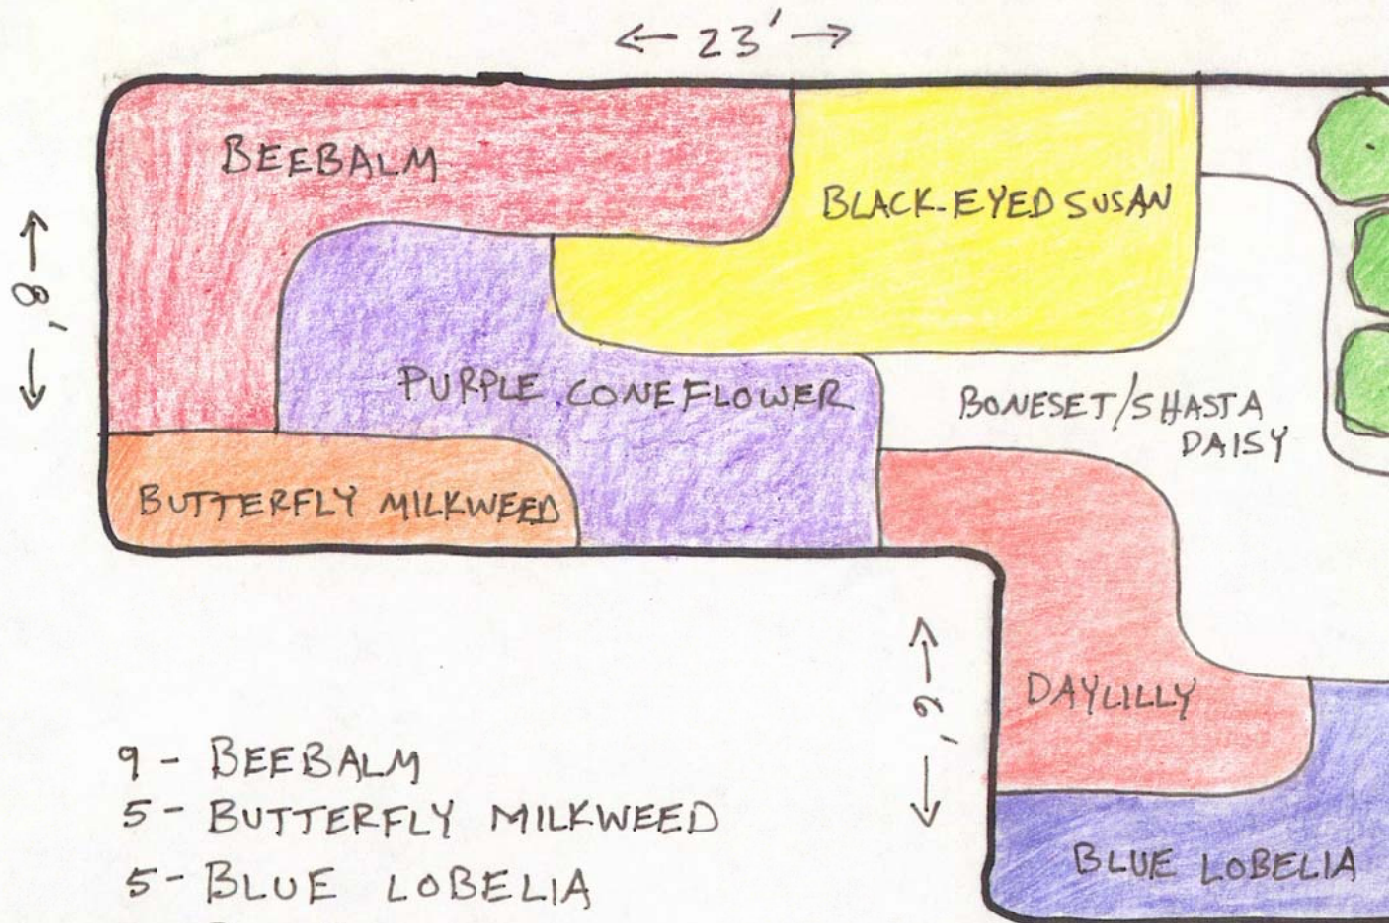 ← 23' →
BEEBALM
BLACK-EYED SUSAN
← 8' →
PURPLE CONEFLOWER
BONESET/SHASTA
DAISY
BUTTERFLY MILKWEED
DAYLILLY
9 - BEEBALM
5 - BUTTERFLY MILKWEED
5 - BLUE LOBELIA
BLUE LOBELIA